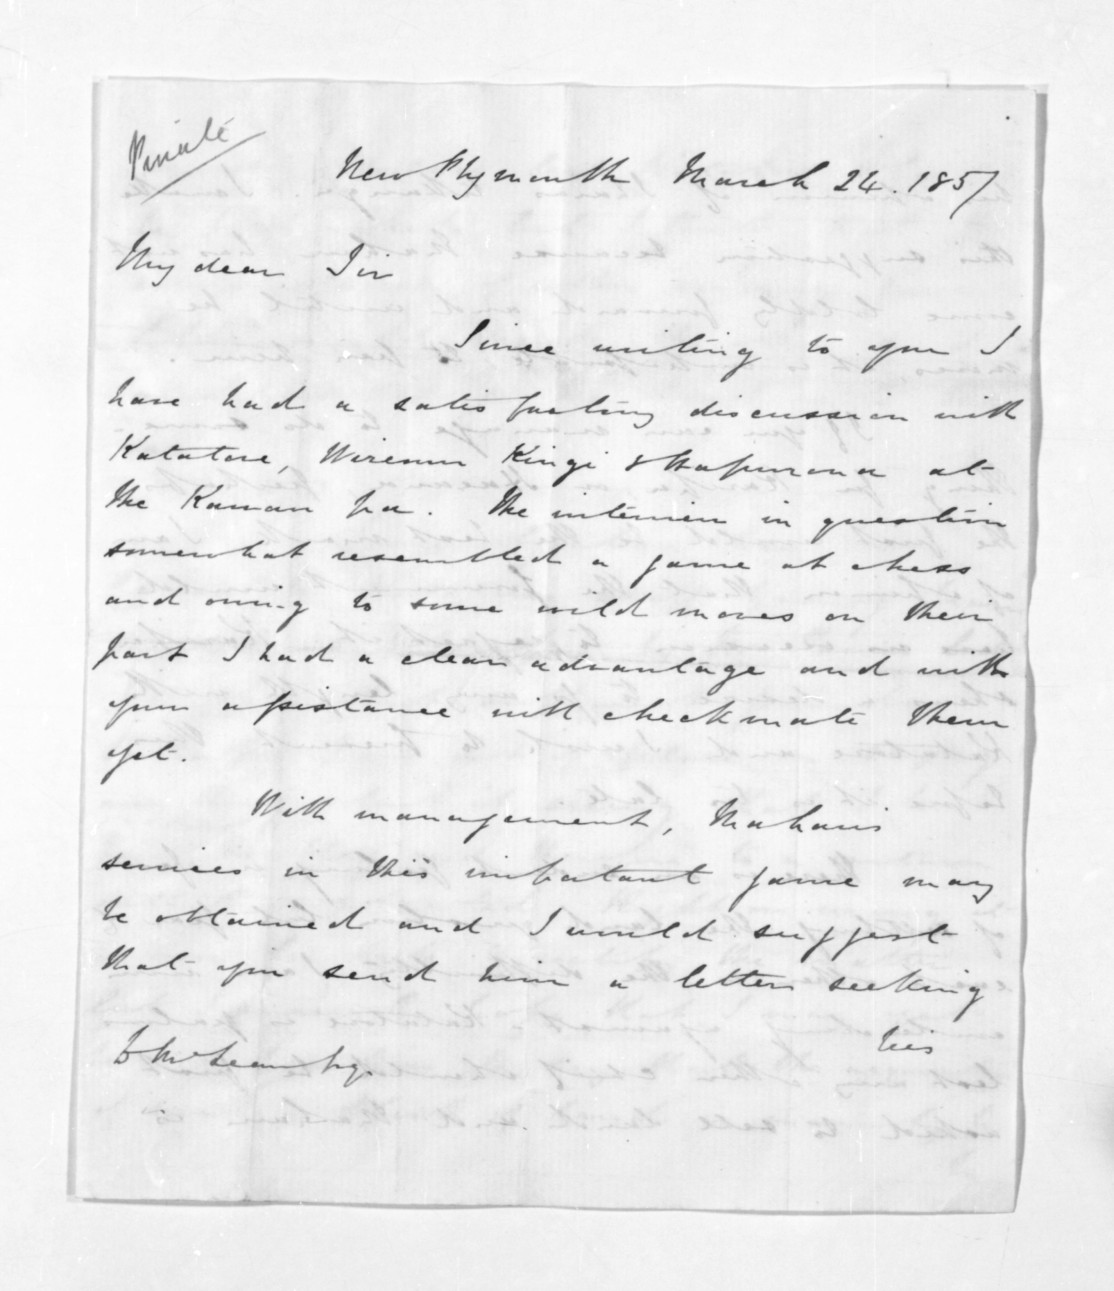 Private
New Plymouth March 24. 1857
My dear Sir
Since writing to you I
have had a satisfactory discussion with
Katatore, Wiremu Kingi & at
the Kawau Pa. The interview in question
somewhat resembled a game at chess
and owing to some wild moves on their
part I had a clear advantage and with
your assistance will checkmate them
yet.
With management, Mahaus
services in this important game may
be obtained and I would suggest
that you send him a letter seeking
his
D McLean Esqr.